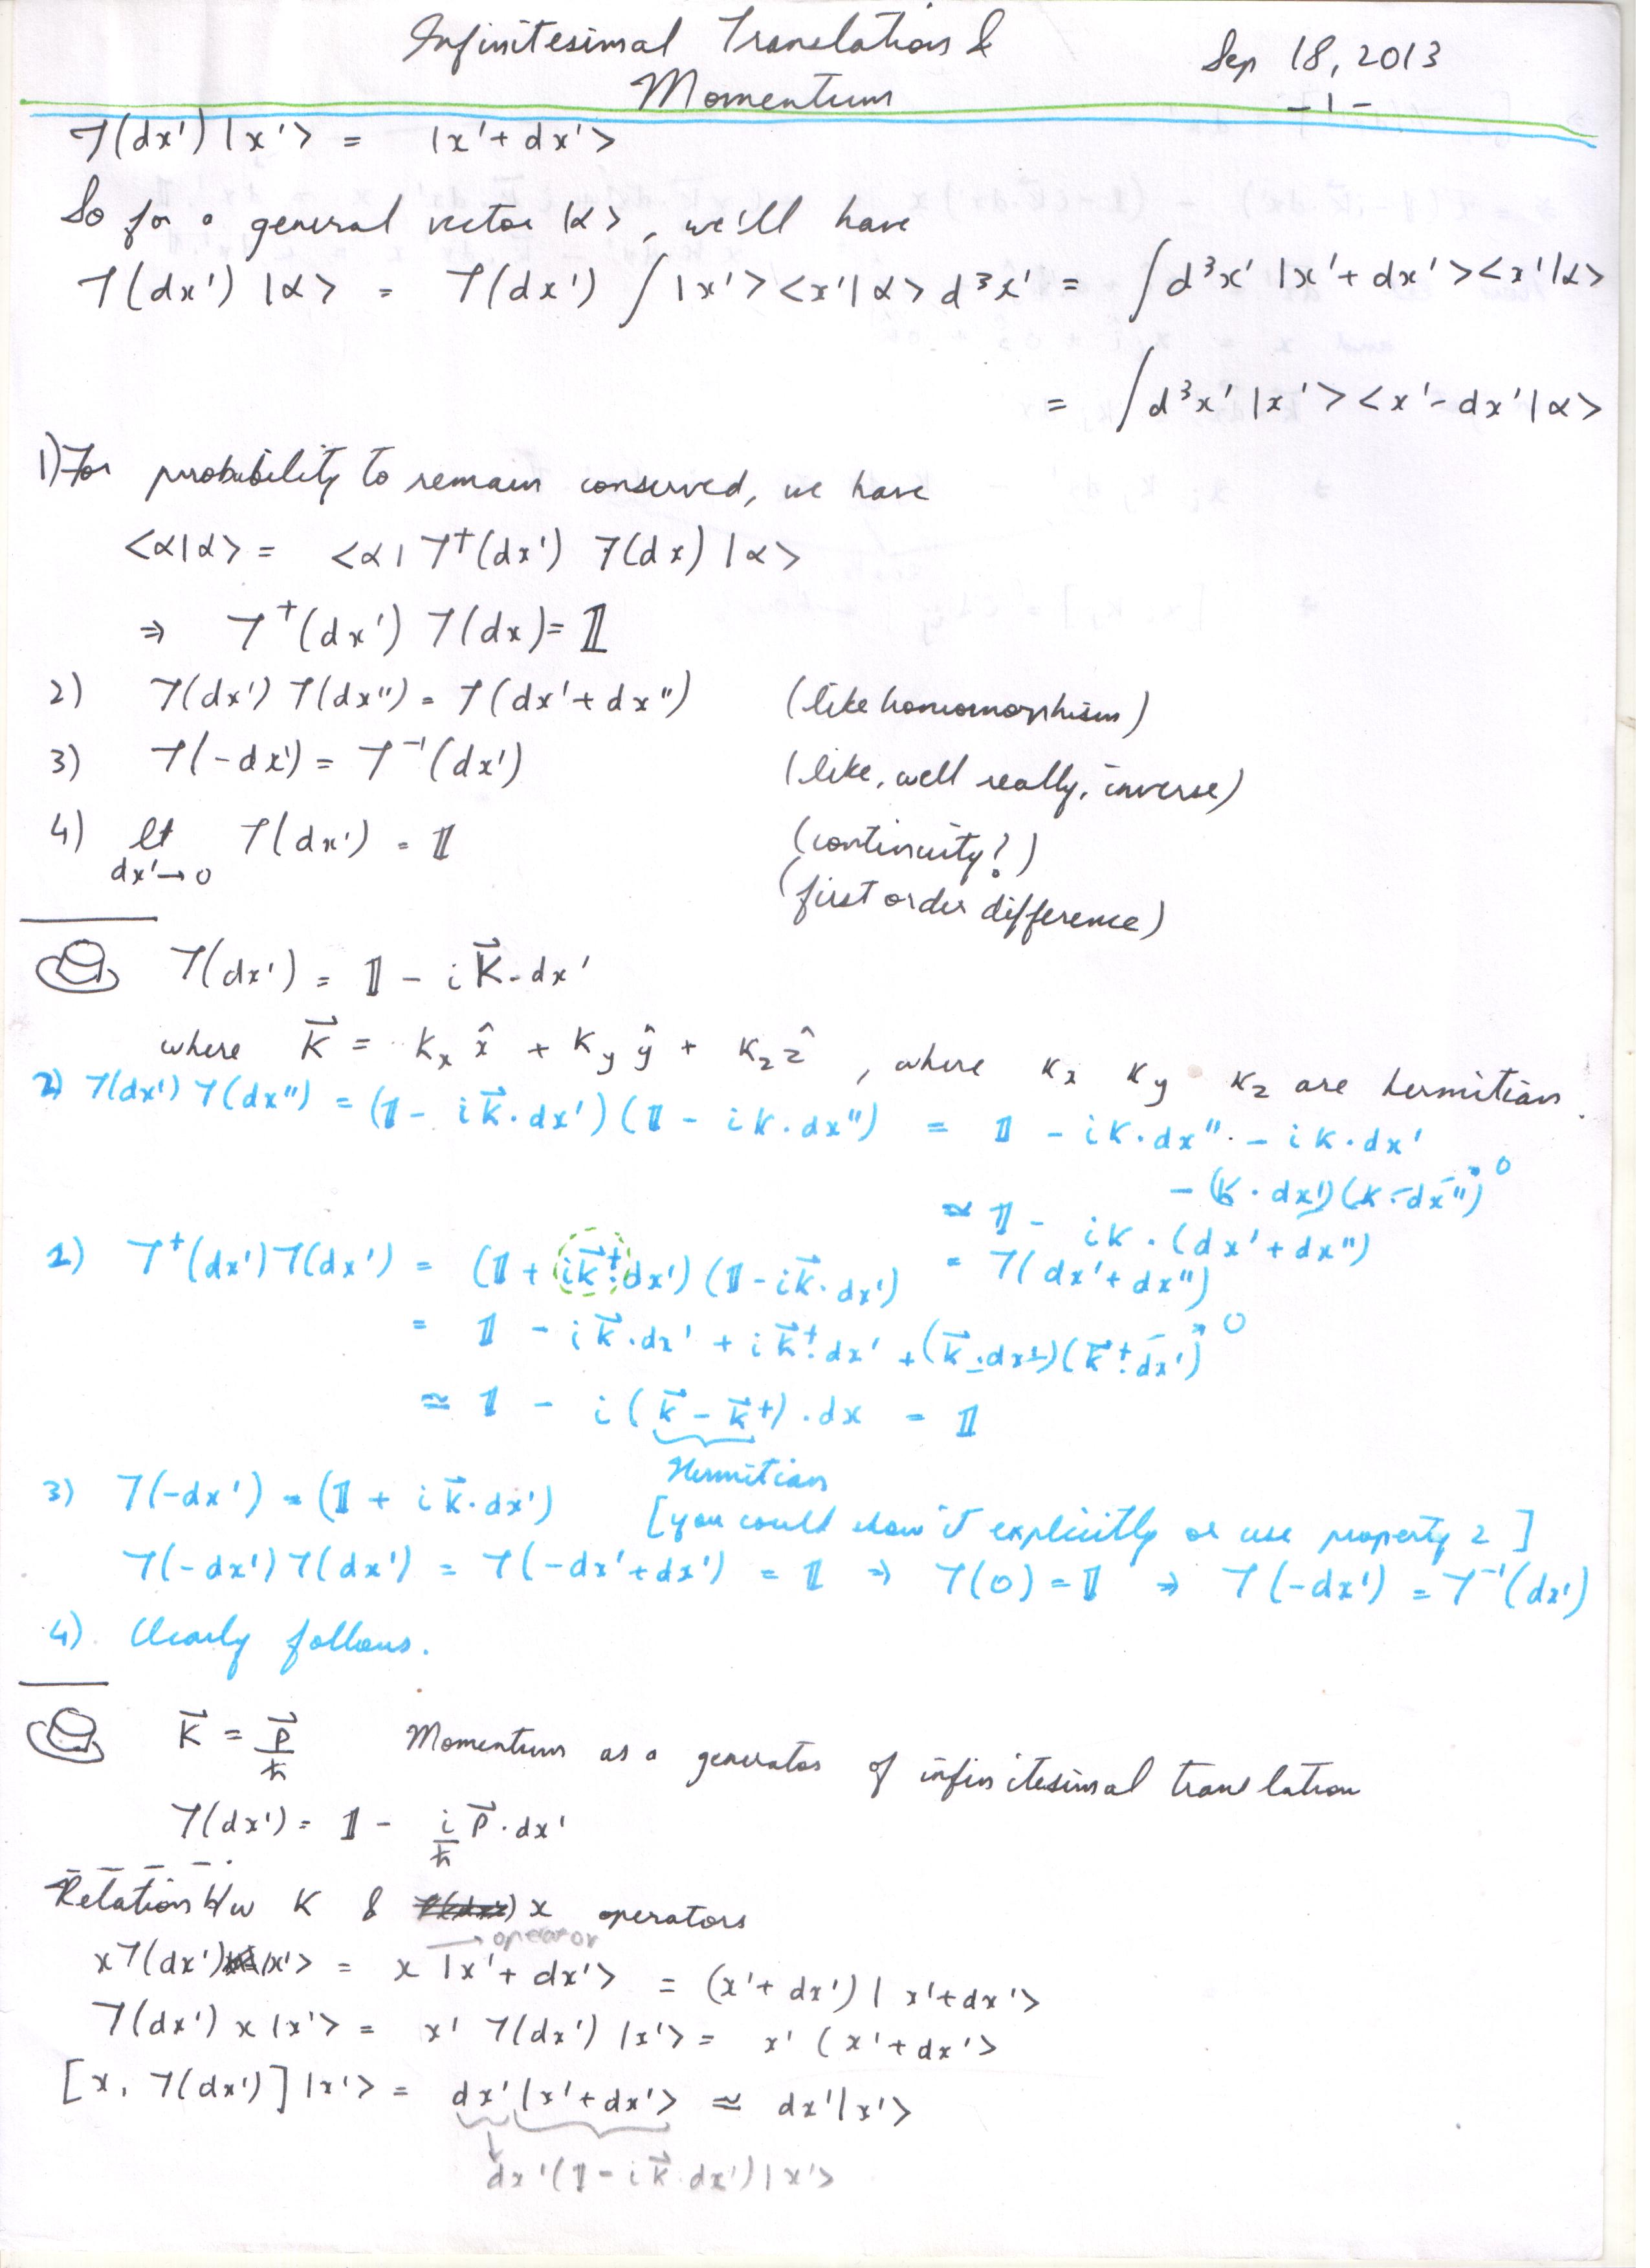 Infinitesimal Translations &
Momentum
Sep 18, 2013
- 1 -
T(dx') |x'> = |x'+dx'>
So for a general vector |α>, we'll have
T(dx') |α> = T(dx') ∫ |x'><x'|α> d³x' = ∫ d³x' |x'+dx'><x'|α>
= ∫ d³x' |x'><x'-dx'|α>
1) For probability to remain conserved, we have
<α|α> = <α| T†(dx') T(dx) |α>
⇒ T†(dx') T(dx) = 𝟙
2) T(dx') T(dx'') = T(dx'+dx'') (like homomorphism)
3) T(-dx') = T⁻¹(dx') (like, well really, inverse)
4) lt T(dx') = 𝟙 (continuity?)
dx'→0
(first order difference)
T(dx') = 𝟙 - i K⃗·dx'
where K⃗ = Kx x̂ + Ky ŷ + Kz ẑ, where Kx Ky Kz are hermitian.
2) T(dx') T(dx'') = (𝟙 - i K⃗·dx')(𝟙 - i K·dx'') = 𝟙 - i K·dx'' - i K·dx'
- (K·dx')(K·dx'') → 0
≈ 𝟙 - i K·(dx'+dx'')
= T(dx'+dx'')
1) T†(dx') T(dx') = (𝟙 + i K⃗†·dx')(𝟙 - i K⃗·dx')
= 𝟙 - i K⃗·dx' + i K⃗†·dx' + (K⃗·dx')(K⃗†·dx') → 0
≃ 𝟙 - i (K⃗ - K⃗†)·dx = 𝟙
Hermitian
3) T(-dx') = (𝟙 + i K⃗·dx') [you could show it explicitly or use property 2]
T(-dx') T(dx') = T(-dx'+dx') = 𝟙 ⇒ T(0) = 𝟙 ⇒ T(-dx') = T⁻¹(dx')
4) Clearly follows.
K⃗ = P⃗/ħ Momentum as a generator of infinitesimal translation
T(dx') = 𝟙 - i/ħ P⃗·dx'
Relation b/w K & x operators
→ operator
x T(dx') |x'> = x |x'+dx'> = (x'+dx') |x'+dx'>
T(dx') x |x'> = x' T(dx') |x'> = x' (x'+dx'>
[x, T(dx')] |x'> = dx' |x'+dx'> ≃ dx' |x'>
dx' (𝟙 - i K⃗·dx') |x'>